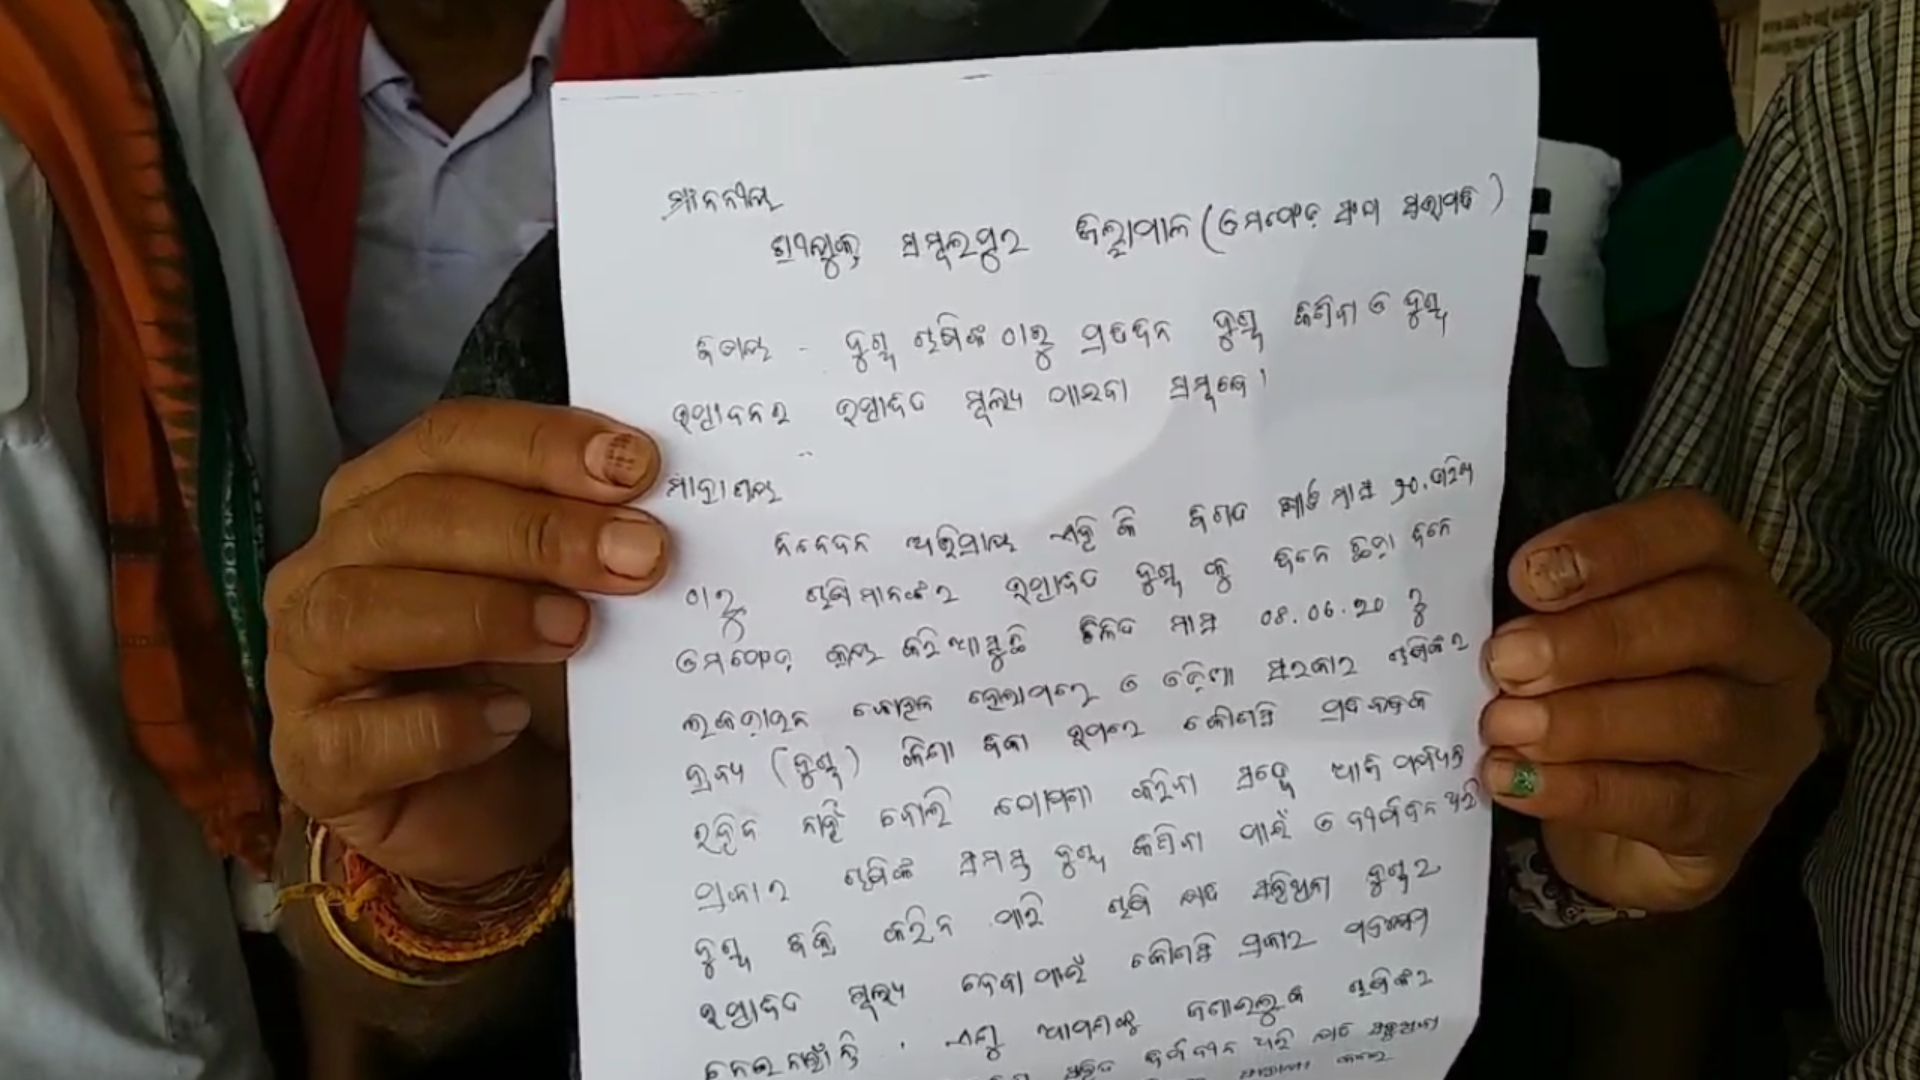 ମାନନୀୟ
ଶ୍ରୀଯୁକ୍ତ ସମ୍ବଲପୁର ଜିଲ୍ଲାପାଳ (ଓମଫେଡ଼ ସଂଘ ସଭାପତି)
ବିଷୟ - ଦୁଗ୍ଧ ଚାଷିଙ୍କ ଠାରୁ ପ୍ରତିଦିନ ଦୁଗ୍ଧ କିଣିବା ଓ ଦୁଗ୍ଧ
ଉତ୍ପାଦନର ଉତ୍ପାଦିତ ମୂଲ୍ୟ ପାଇବା ସମ୍ବନ୍ଧେ ।
ମହାଶୟ
ନିବେଦନ ଅଭିପ୍ରାୟ ଏହି କି ବିଗତ ମାର୍ଚ୍ଚ ମାସ ୨୦ ତାରିଖ
ଠାରୁ ଚାଷିମାନଙ୍କର ଉତ୍ପାଦିତ ଦୁଗ୍ଧ କୁ ଦିନେ ଛଡ଼ା ଦିନେ
ଓମଫେଡ଼ କ୍ରୟ କରିଆସୁଛି ଚଳିତ ମାସ 08.06.20 ରୁ
ଲକଡ଼ାଉନ କୋହଳ ହେଲାପରେ ଓ ଓଡ଼ିଶା ସରକାର ଚାଷିଙ୍କର
ଦ୍ରବ୍ୟ (ଦୁଗ୍ଧ) କିଣା ବିକା ଉପରେ କୌଣସି ପ୍ରତିବନ୍ଧକ
ରହିବ ନାହିଁ ବୋଲି ଘୋଷଣା କରିବା ସତ୍ତ୍ୱେ ଆଜି ପର୍ଯ୍ୟନ୍ତ
ପ୍ରକାର ଚାଷିଙ୍କ ସମସ୍ତ ଦୁଗ୍ଧ କିଣିବା ପାଇଁ ଓ
ଦୁଗ୍ଧ ବିକ୍ରି କରିବା ପାଇଁ ଚାଷି ଦୁଗ୍ଧର
ଉତ୍ପାଦିତ ମୂଲ୍ୟ ଦେବା ପାଇଁ କୌଣସି ପ୍ରକାର ପଦକ୍ଷେପ
ନେଇନାହାଁନ୍ତି । ଏଣୁ ଆପଣଙ୍କୁ ଜଣାଇଲୁକି ଚାଷିଙ୍କର